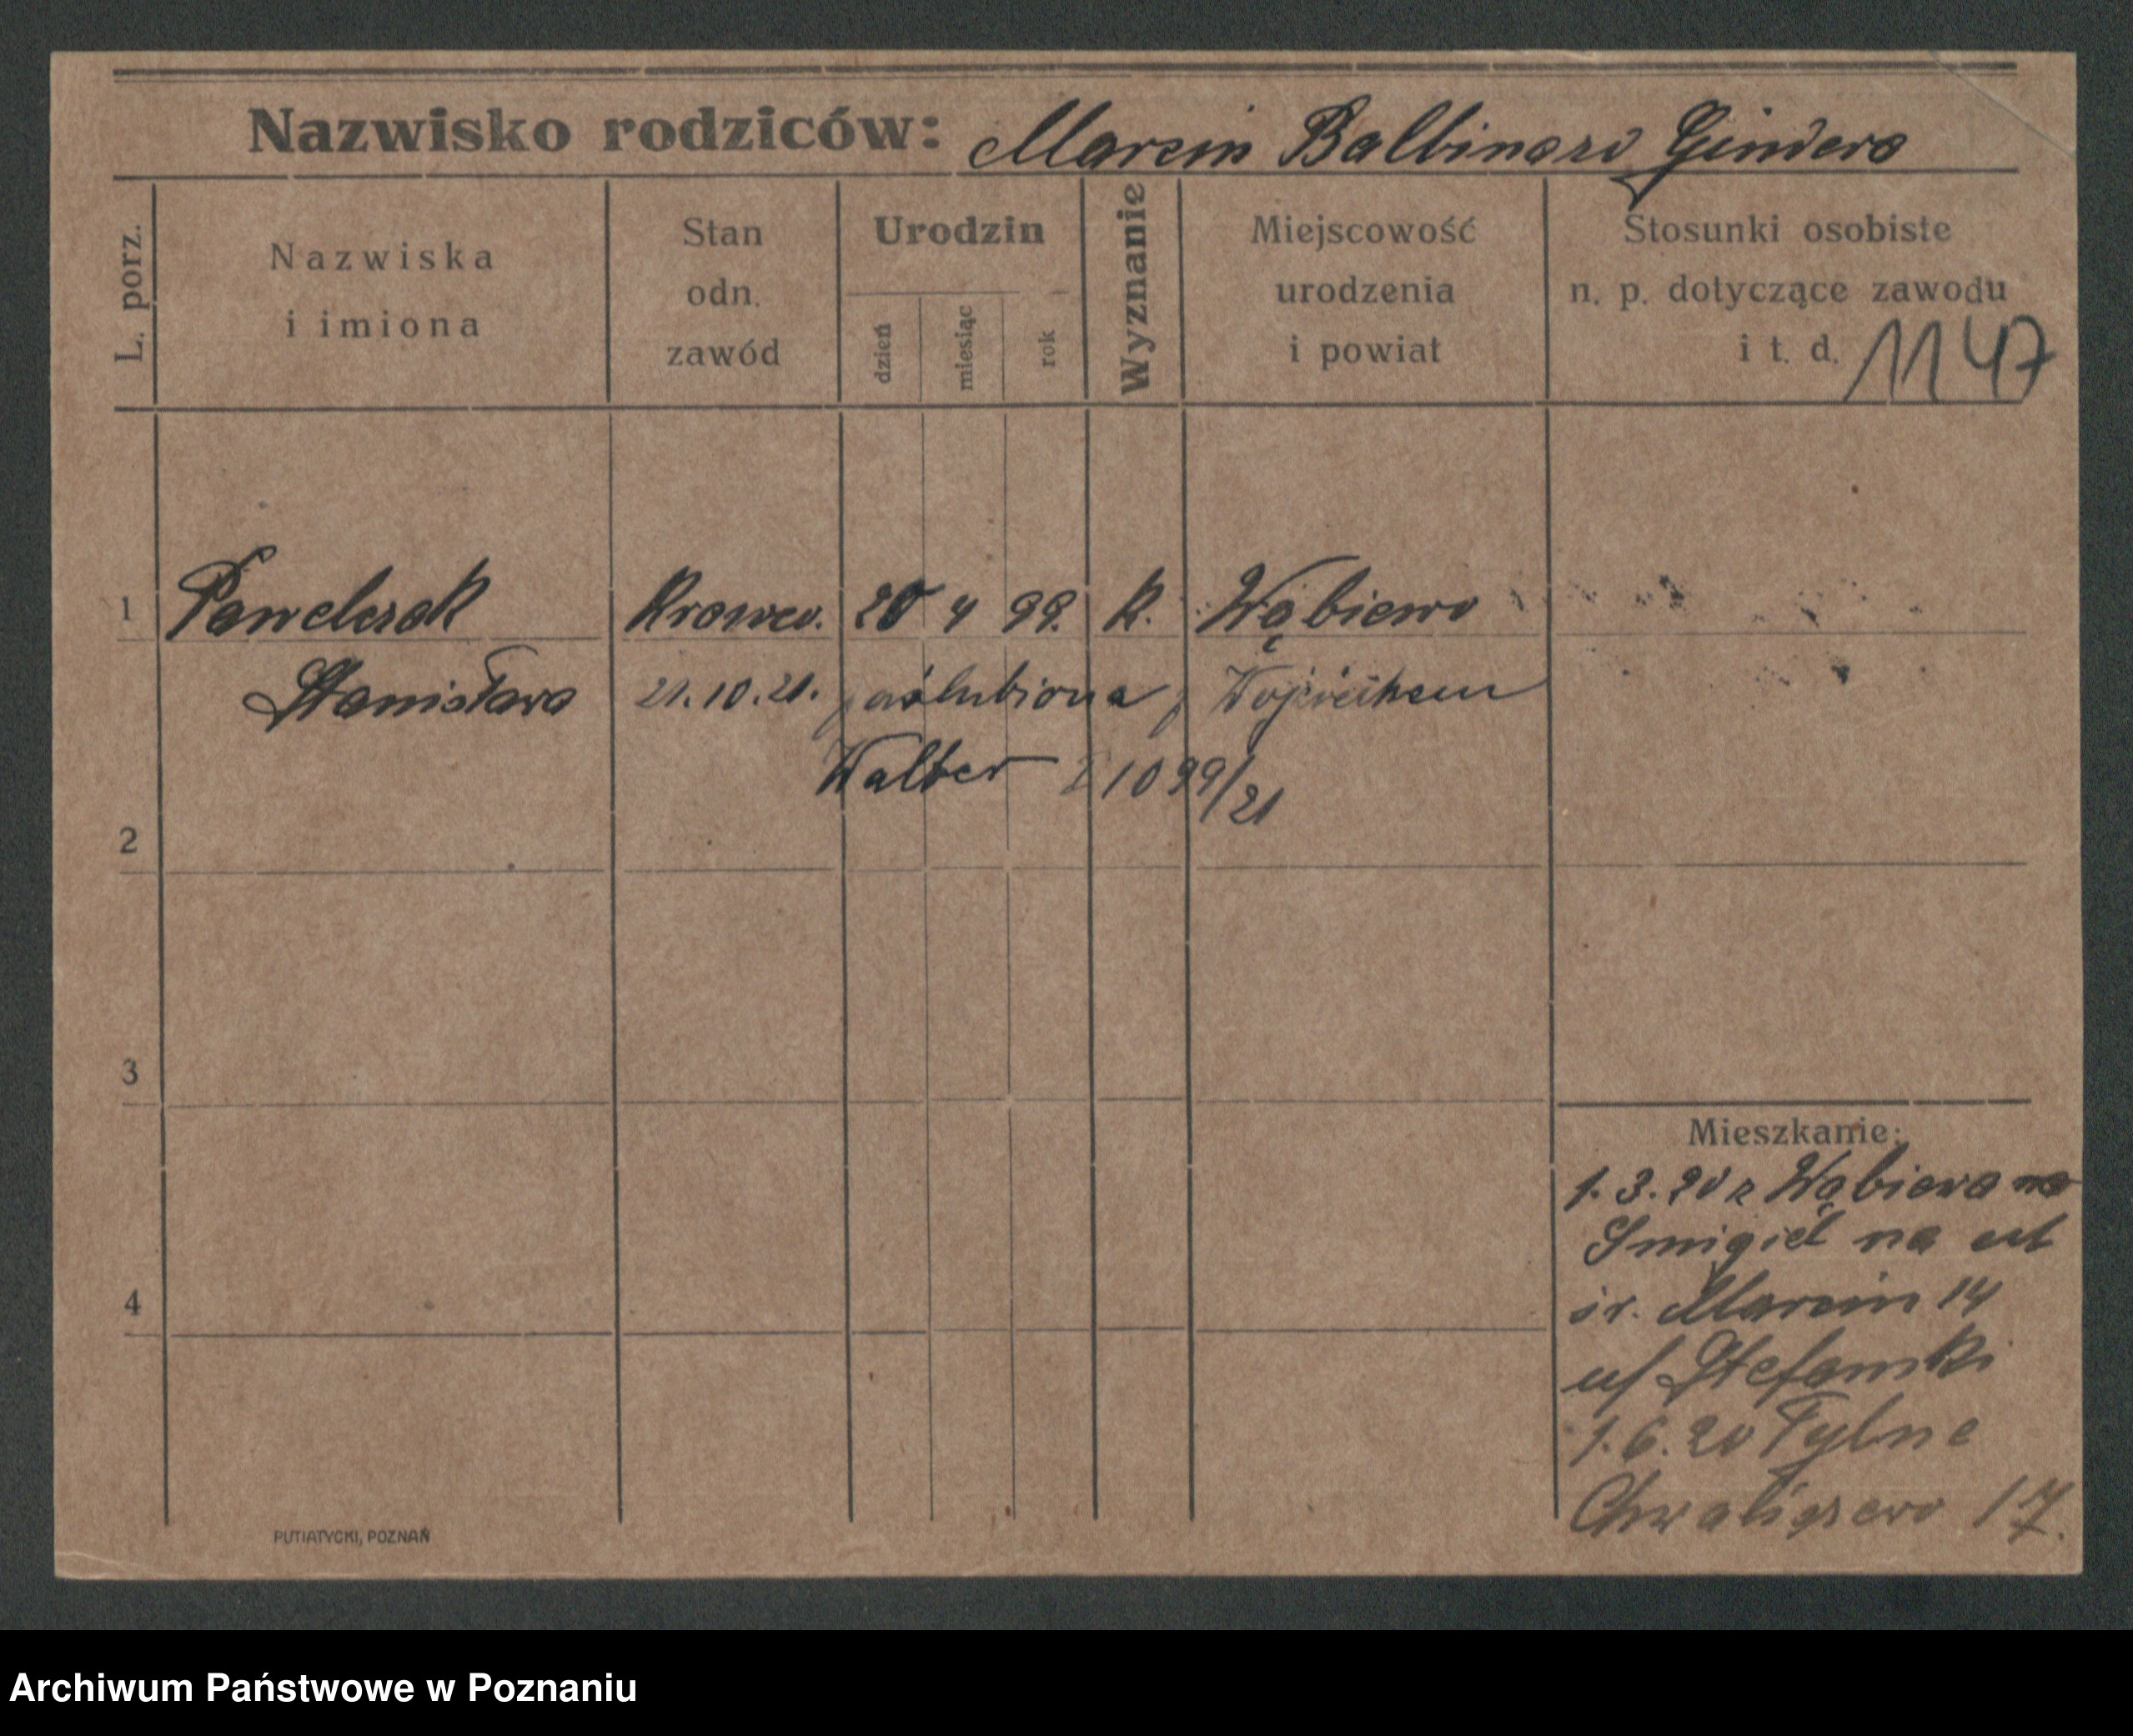 Nazwisko rodziców: Marcin Balbina zd Gindera
L. porz.
Nazwiska
i imiona
Stan
odn.
zawód
Urodzin
dzień
miesiąc
rok
Wyznanie
Miejscowość
urodzenia
i powiat
Stosunki osobiste
n. p. dotyczące zawodu
i t. d. 1147
1 Pawelczak Krawco. 20 4 99. K. Wąbiewo
Stanisława 21.10.21. zaślubiona z Wojciechem
Walter 1099/21
2
3
4
Mieszkanie:
1.3.20 z Wąbiewa
Smigiel na ul
św. Marcin 14
u/ Stefanski
1.6.20 Tylne
Chwaliszewo 17.
PUTIATYCKI, POZNAŃ
Archiwum Państwowe w Poznaniu